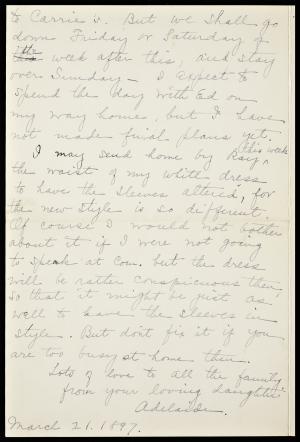 to Carrie's. But we shall go
down Friday or Saturday of
the week after this, and stay
over Sunday - I expect to
spend the day with Ed on
my way home, but I have
not made final plans yet.
I may send home by Ray this week
the waist of my white dress
to have the sleeves altered, for
the new style is so different.
Of course I would not bother
about it if I were not going
to speak at Com. but the dress
will be rather conspicuous then
so that it might be just as
well to have the sleeves in
style. But don't fix it if you
are too busy at home then.
Lots of love to all the family
from your loving daughter
Adelaide.
March 21. 1897.